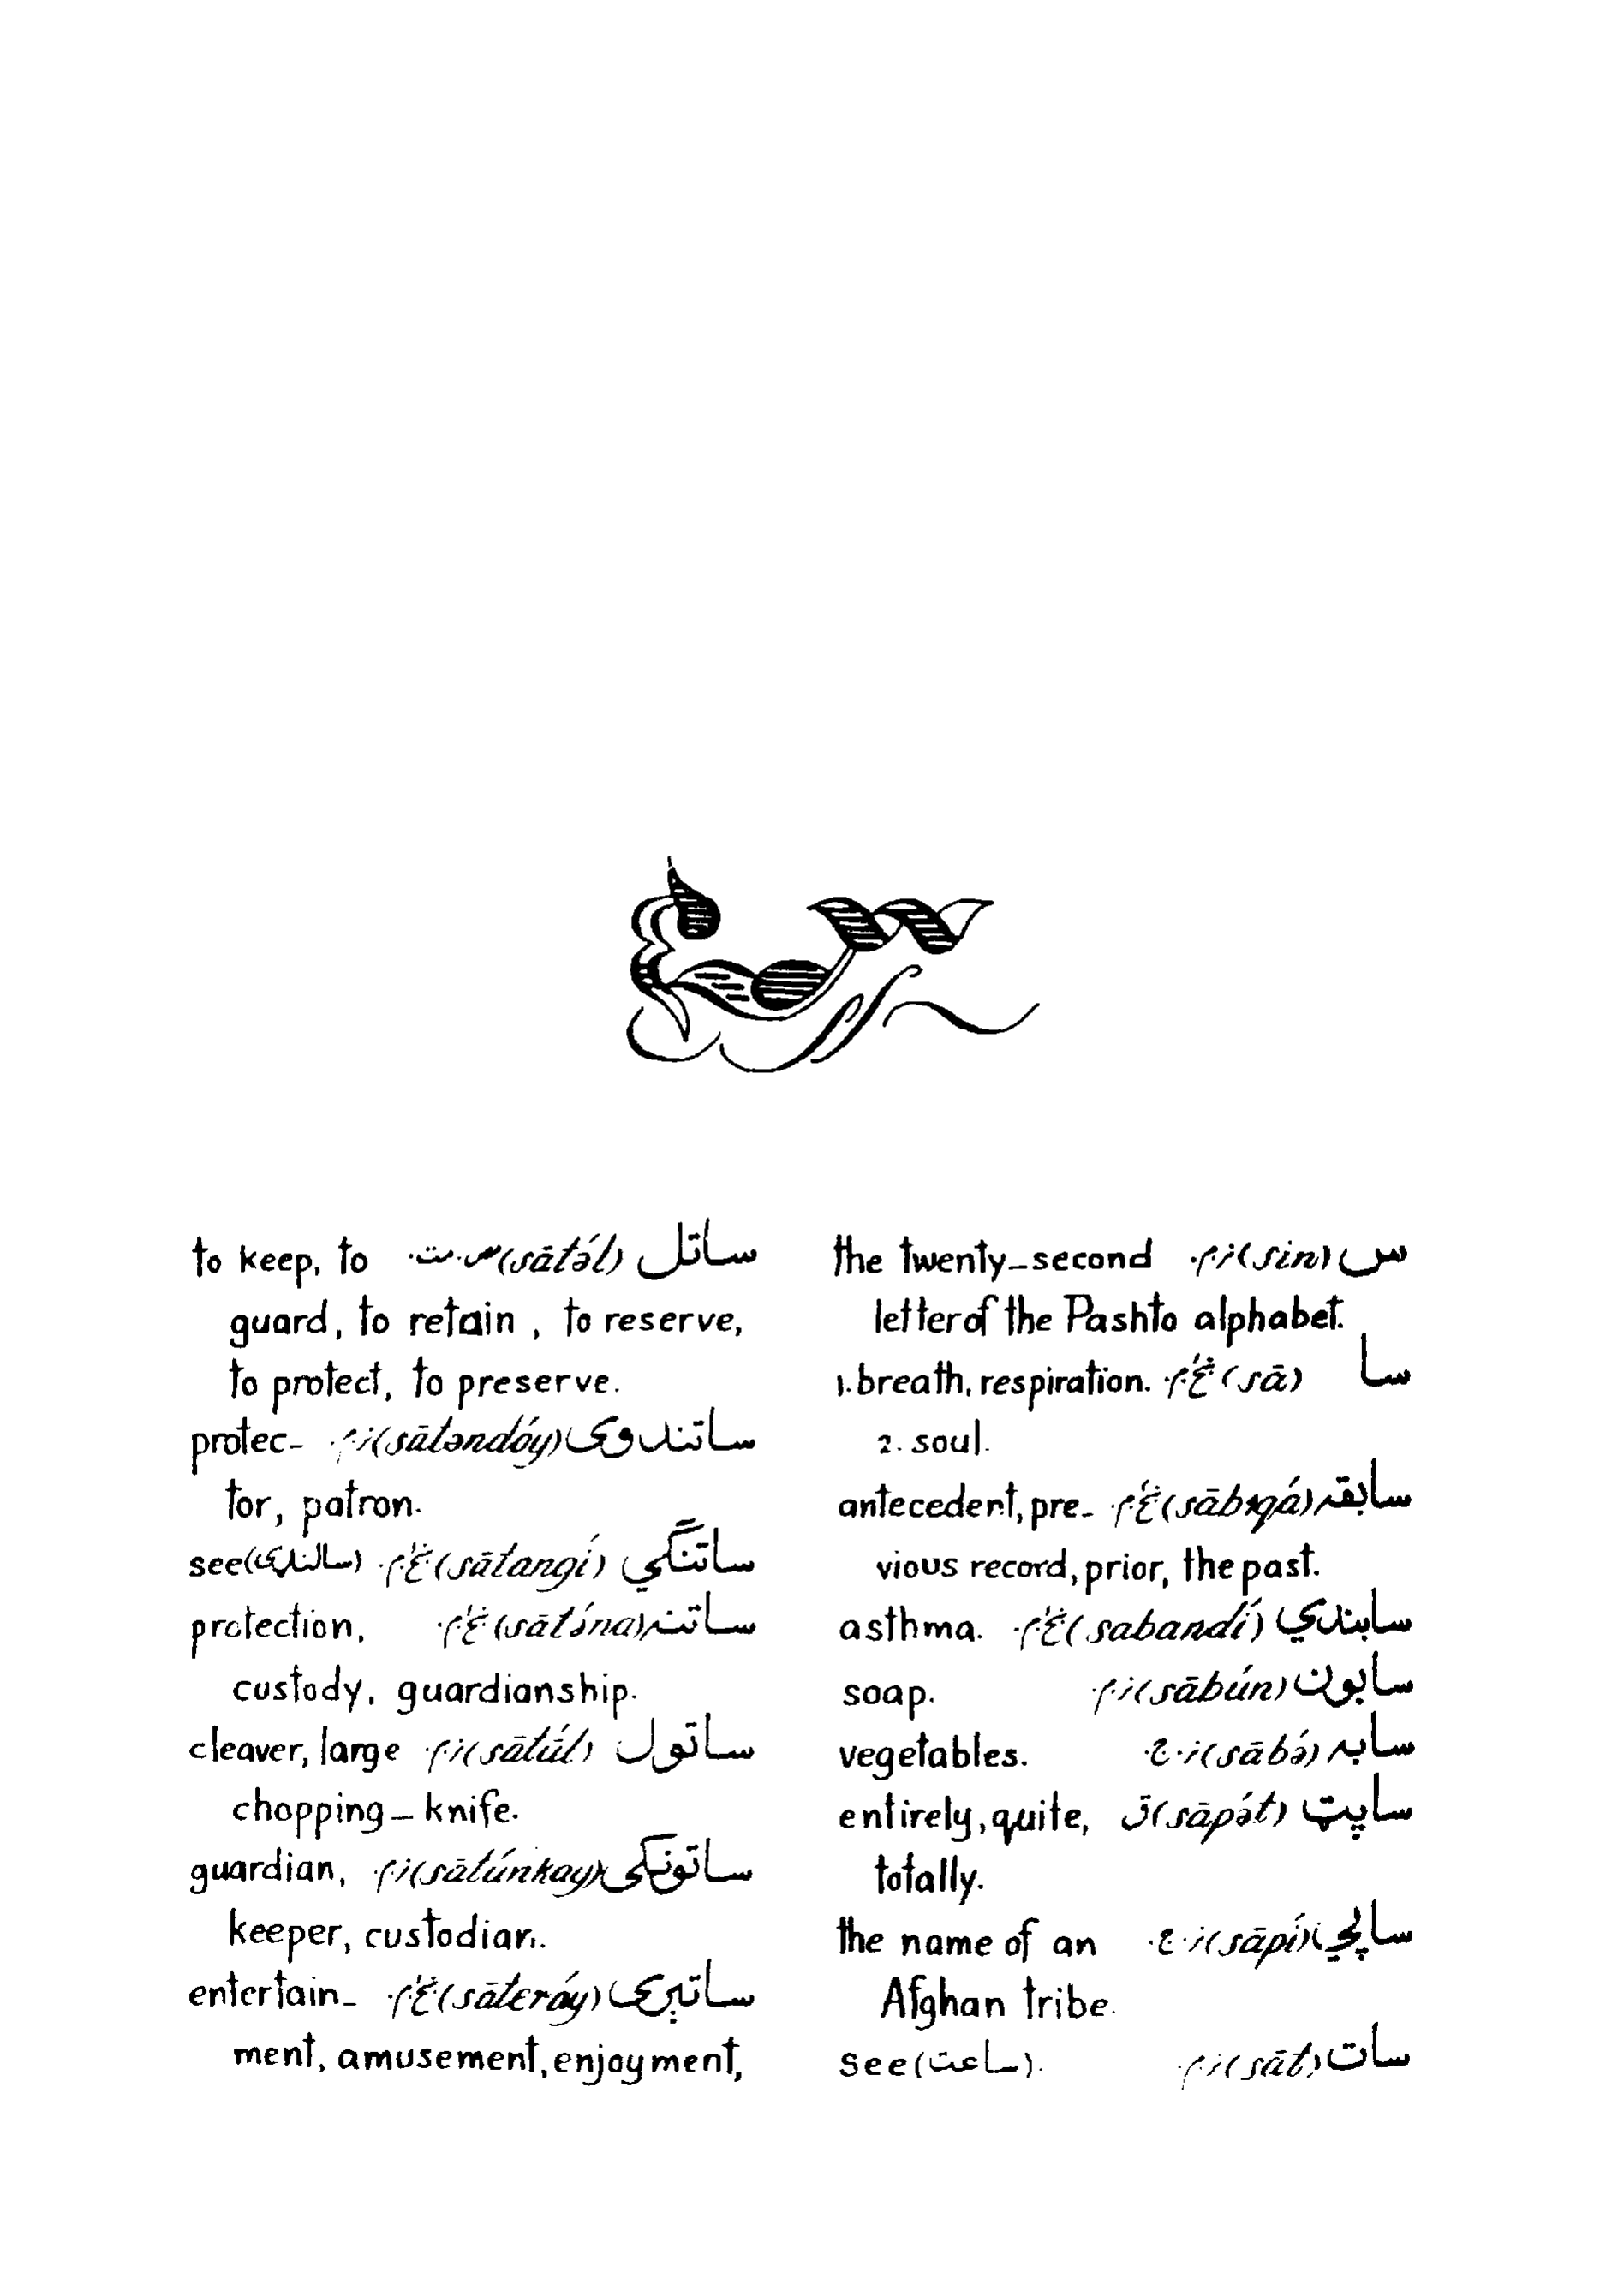 س (sin) ن.م. the twenty-second
letter of the Pashto alphabet.
سا (sā) ښځ.م. 1. breath, respiration.
2. soul.
سابقه (sābiqá) ښځ.م. antecedent, pre-
vious record, prior, the past.
سابندي (sabandí) ښځ.م. asthma.
سابون (sābún) ن.م. soap.
سابه (sābə́) ن.ج. vegetables.
ساپټ (sāpə́t) ق entirely, quite,
totally.
ساپي (sāpí) ن.ج. the name of an
Afghan tribe.
سات (sāt) ن.م. see (ساعت).
ساتل (sātə́l) مص.ت. to keep, to
guard, to retain, to reserve,
to protect, to preserve.
ساتندوی (sātəndóy) ن.م. protec-
tor, patron.
ساتنگي (sātangí) ښځ.م. see
ساتنه (sātə́na) ښځ.م. protection,
custody, guardianship.
ساتول (sātúl) ن.م. cleaver, large
chopping-knife.
ساتونکی (sātúnkay) ن.م. guardian,
keeper, custodian.
ساتېری (sāteráy) ښځ.م. entertain-
ment, amusement, enjoyment,